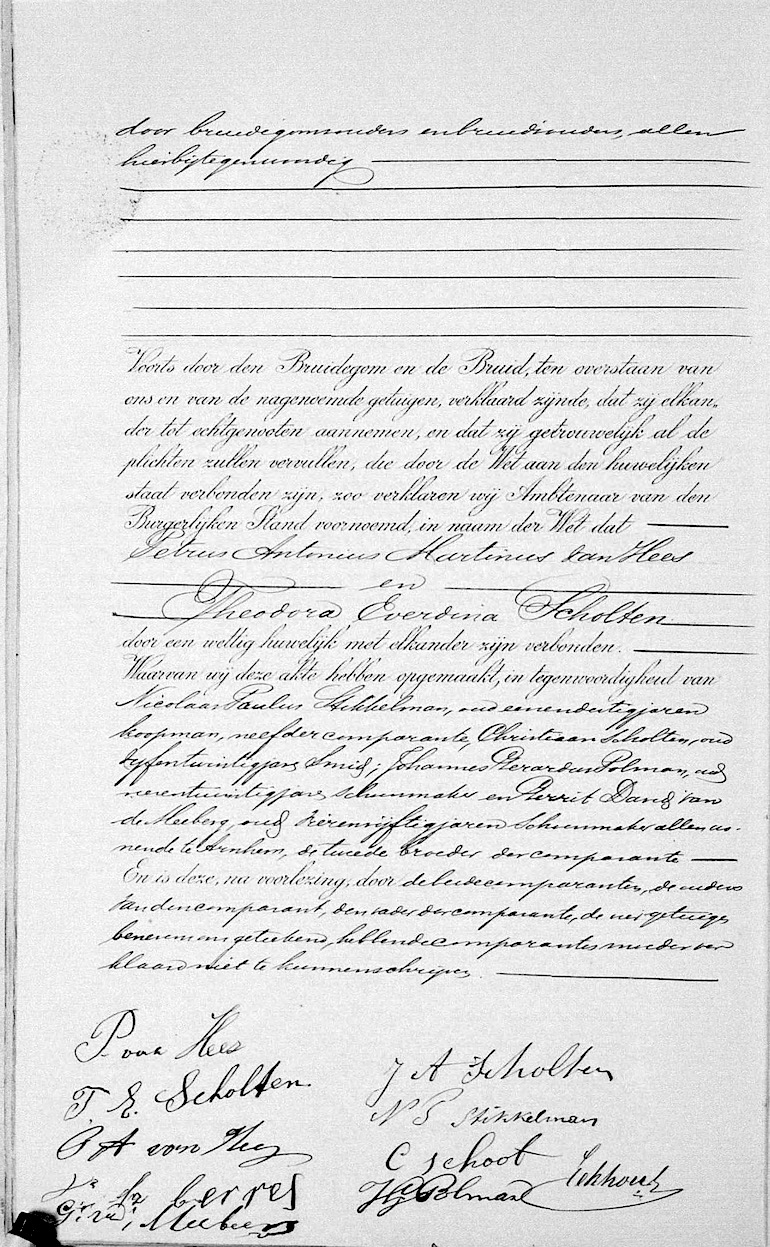 door bruidegomsouders en bruidsouders, allen
hierbij tegenwoordig
Voorts door den Bruidegom en de Bruid, ten overstaan van
ons en van de nagenoemde getuigen, verklaard zijnde, dat zij elkan„
der tot echtgenooten aannemen, en dat zij getrouwelijk al de
plichten zullen vervullen, die door de Wet aan den huwelijken
staat verbonden zijn, zoo verklaren wij Ambtenaar van den
Burgerlijken Stand voornoemd, in naam der Wet dat
Petrus Antonius Martinus van Hees
en
Theodora Everdina Scholten
door een wettig huwelijk met elkander zijn verbonden.
Waarvan wij deze akte hebben opgemaakt, in tegenwoordigheid van
Nicolaas Paulus Stikkelman, oud eenendertig jaren
koopman, neef der comparante, Christiaan Scholten, oud
vyfentwintig jaren Smid; Johannes Gerardus Polman, oud
jaren Schoenmaker en Gerrit David van
de Meeberg, oud vierenvijftig jaren Schoenmaker allen wo-
nende te Arnhem, de tweede broeder der comparante
En is deze, na voorlezing, door de beide comparanten, de ouders
van den comparant, den vader der comparante, de vier getuigen
benevens ons geteekend, hebbende comparantes moeder ver
klaard niet te kunnen schrijven.
P. van Hees
J A Scholten
T. E. Scholten
N P Stikkelman
P A van Hees
C Schoot
Eekhout
berres
JG Polman